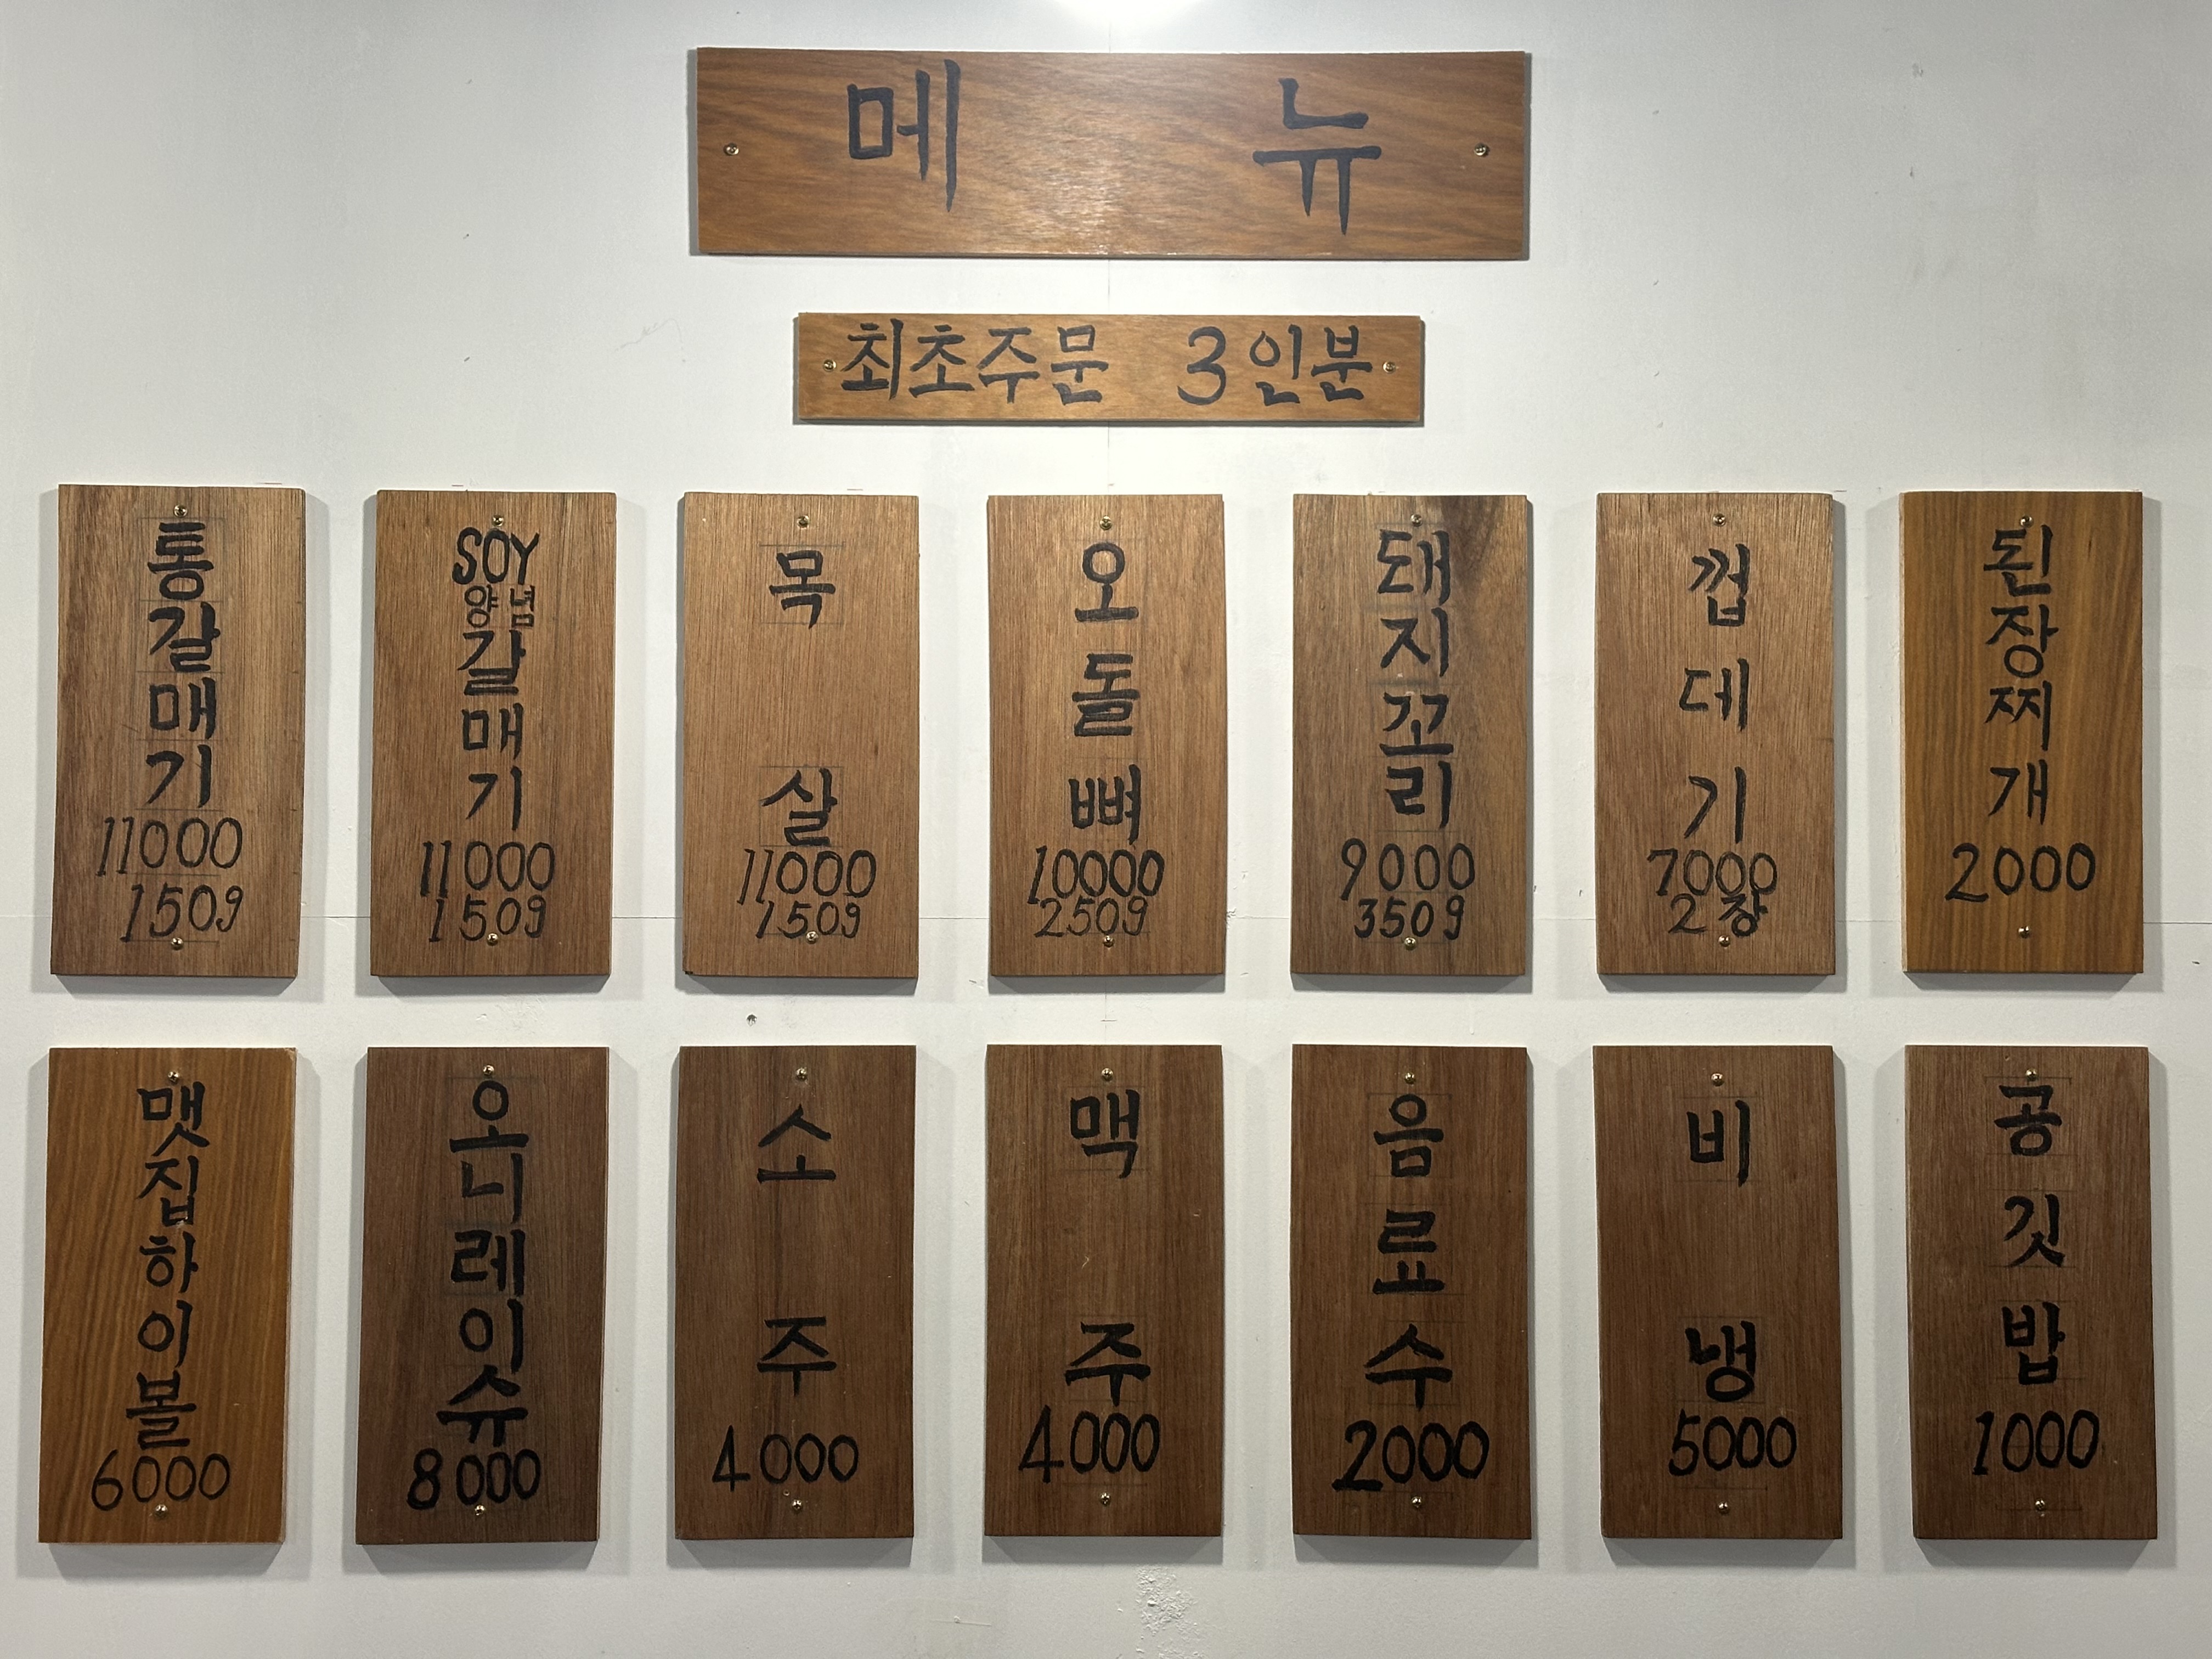 메뉴
최초주문 3인분
통갈매기
11000
150g
SOY
양념
갈매기
11000
150g
목살
11000
150g
오돌뼈
10000
250g
돼지꼬리
9000
350g
껍데기
7000
2장
된장찌개
2000
맷집하이볼
6000
오니레이슈
8000
소주
4000
맥주
4000
음료수
2000
비냉
5000
공깃밥
1000